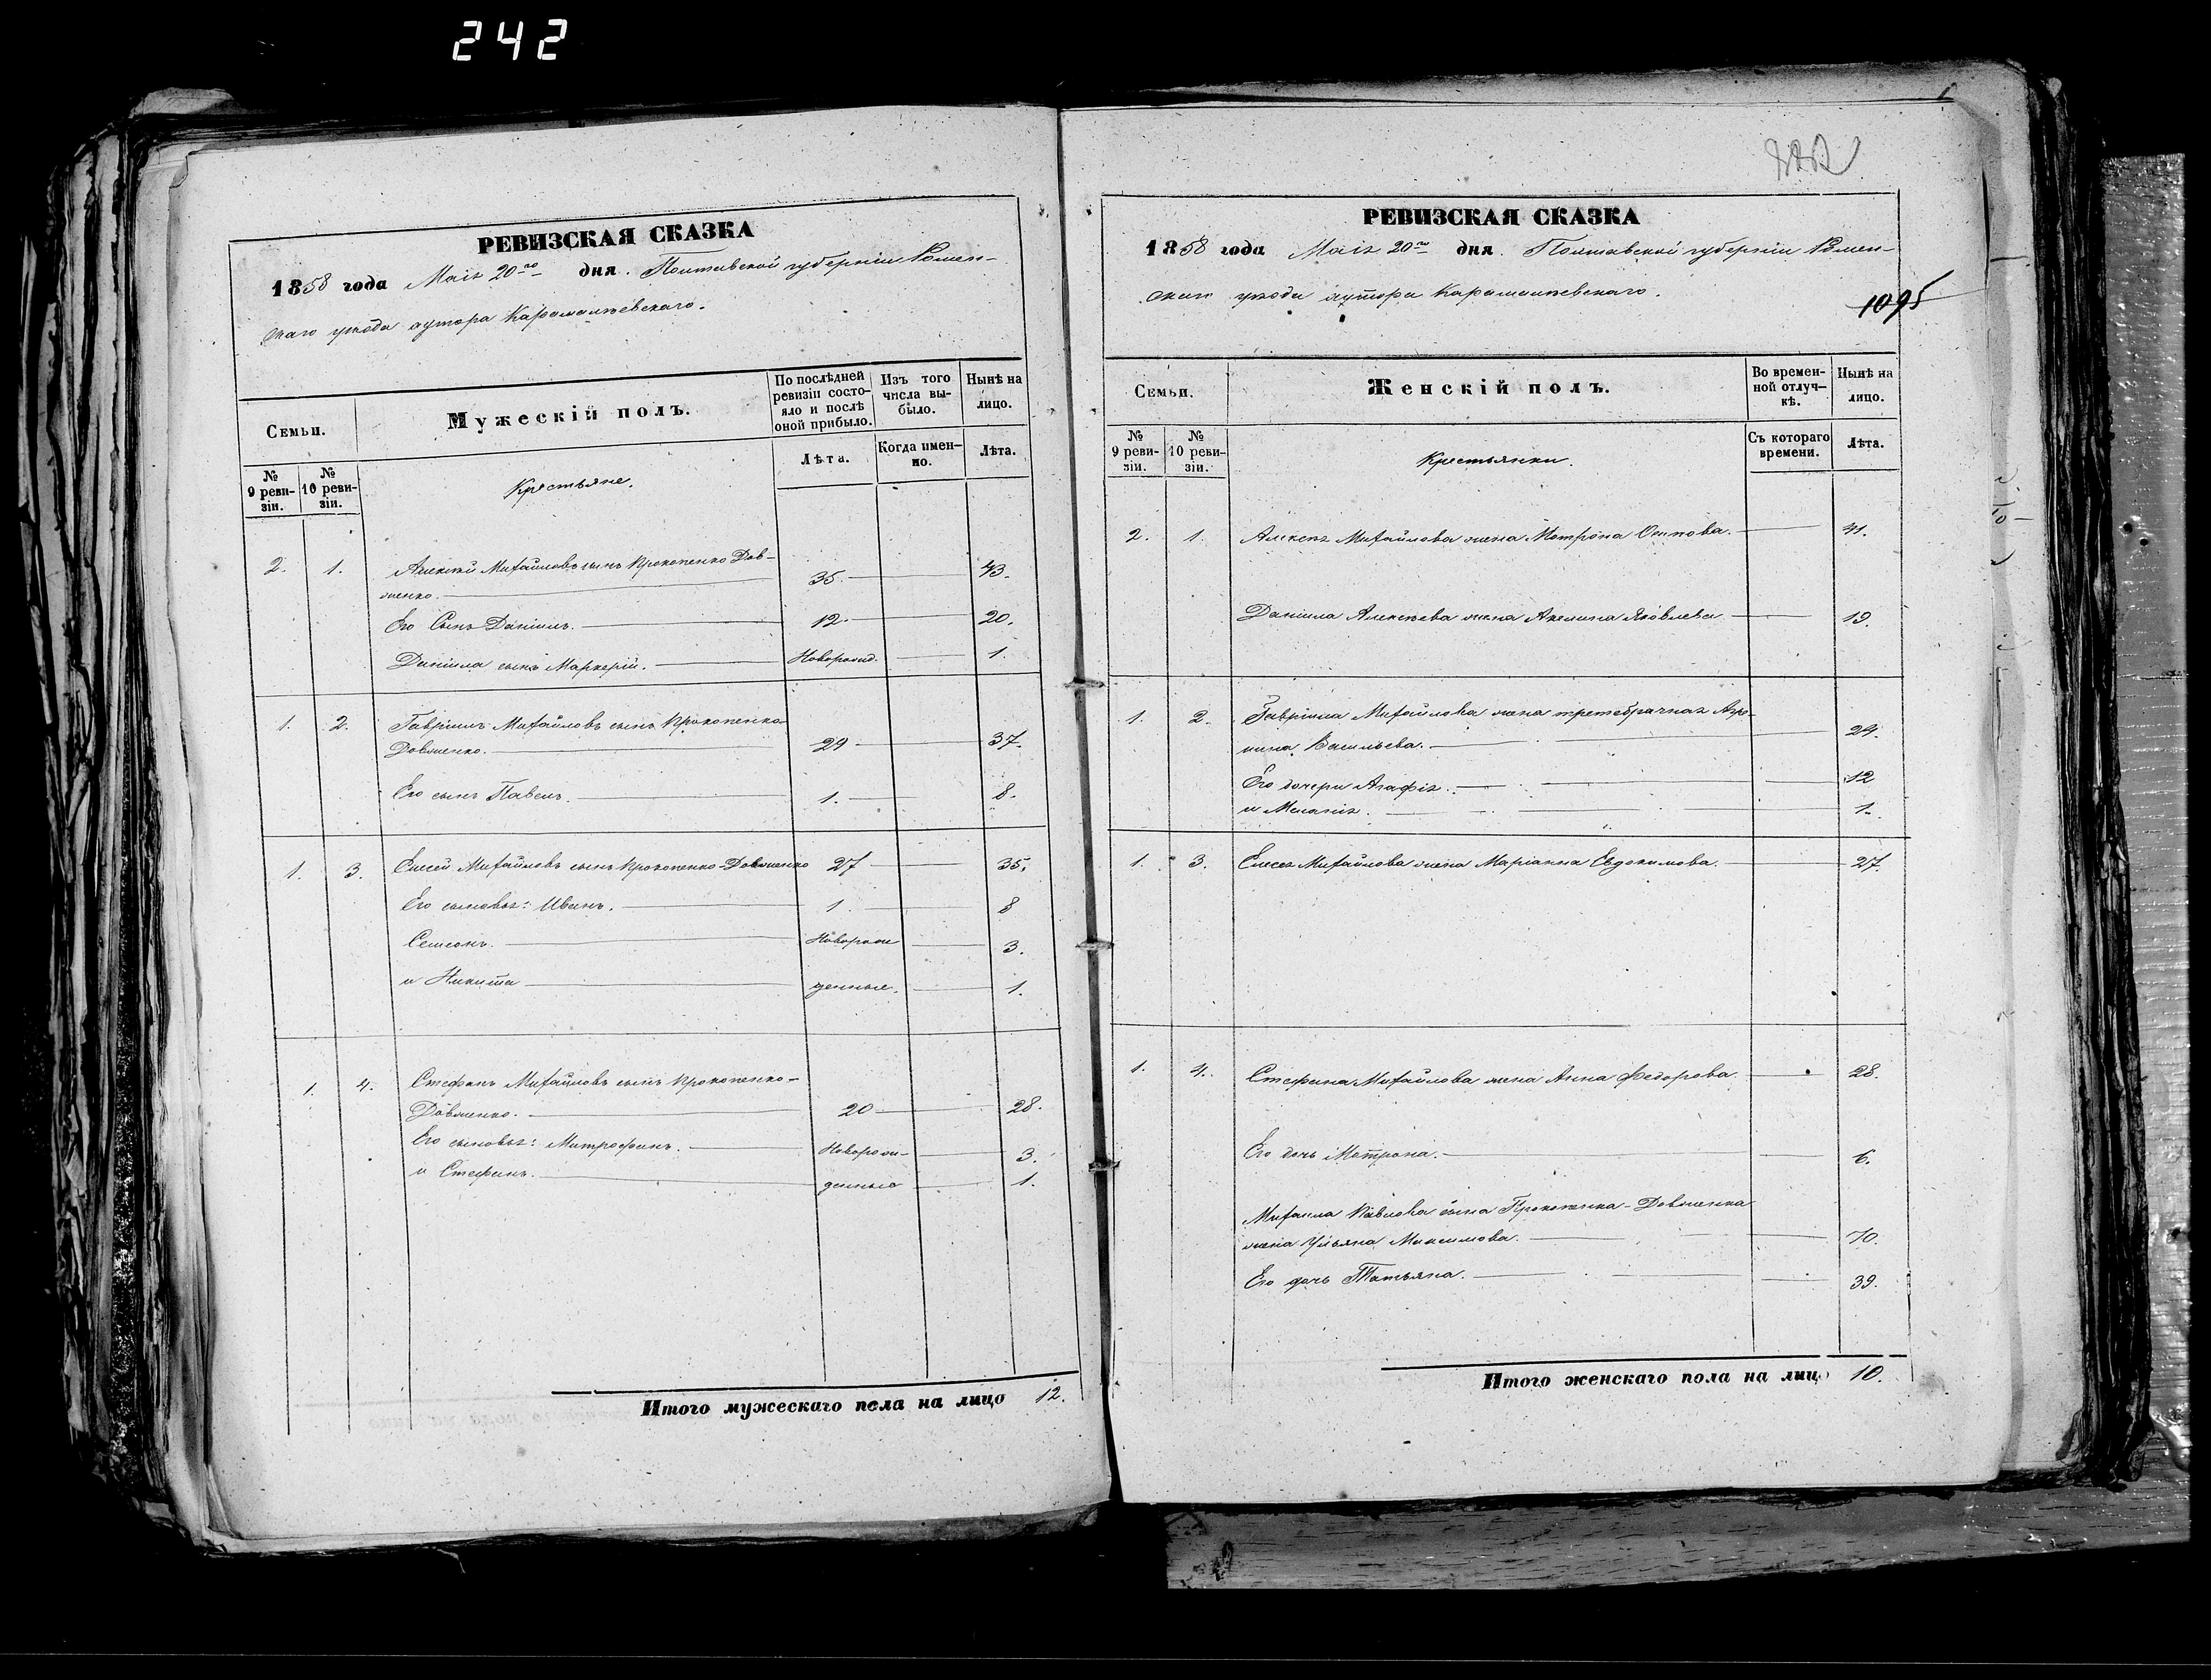 242
РЕВИЗСКАЯ СКАЗКА
1858 года Маія 20го дня. Полтавской губерніи Ромен-
скаго уѣзда хутора Карамалѣевскаго.
Семьи.
Мужескій полъ.
По послѣдней ревизіи состо-яло и послѣ оной прибыло.
Изъ того числа вы-было.
Нынѣ на лицо.
№ 9 реви-зіи.
№ 10 реви-зіи.
Крестьяне.
Лѣта.
Когда имен-но.
Лѣта.
2. 1. Алексѣй Михайловъ сынъ Прокопенко Дов-
женко. 35. 43.
Его Сынъ Даніилъ. 12. 20.
Даніила сынъ Маркерій. Новорожд. 1.
1. 2. Гавріилъ Михайловъ сынъ Прокопенко
Довженко. 29 37.
Его сынъ Павелъ. 1. 8.
1. 3. Елисей Михайловъ сынъ Прокопенко-Довженко 27 35.
Его сыновья: Иванъ. 1. 8
Семеонъ. Новорож 3.
и Никита денные. 1.
1. 4. Стефанъ Михайловъ сынъ Прокопенко-
Довженко. 20 28.
Его сыновья: Митрофанъ. Новорож- 3.
и Стефанъ. денные 1.
Итого мужескаго пола на лицо 12.
РЕВИЗСКАЯ СКАЗКА
1858 года Маія 20го дня. Полтавской губерніи Ромен-
скаго уѣзда хутора Карамалѣевскаго.
1095
Семьи.
Женскій полъ.
Во времен-ной отлуч-кѣ.
Нынѣ на лицо.
№ 9 реви-зіи.
№ 10 реви-зіи.
Крестьянки.
Съ котораго времени.
Лѣта.
2. 1. Алексѣя Михайлова жена Мотрона Осипова. 41.
Даніила Алексѣева жена Акелина Яковлева 19.
1. 2. Гавріила Михайлова жена третебрачная Агро-
пина Васильева. 24.
Его дочери Агафія. 12
и Меланія. 1.
1. 3. Елисея Михайлова жена Маріанна Евдокимова. 27.
1. 4. Стефана Михайлова жена Анна Федорова. 28.
Его дочь Мотрона. 6.
Михаила Павлова сына Прокопенка-Довженка
жена Ульяна Максимова. 70.
Его дочь Татьяна. 39.
Итого женскаго пола на лицо 10.